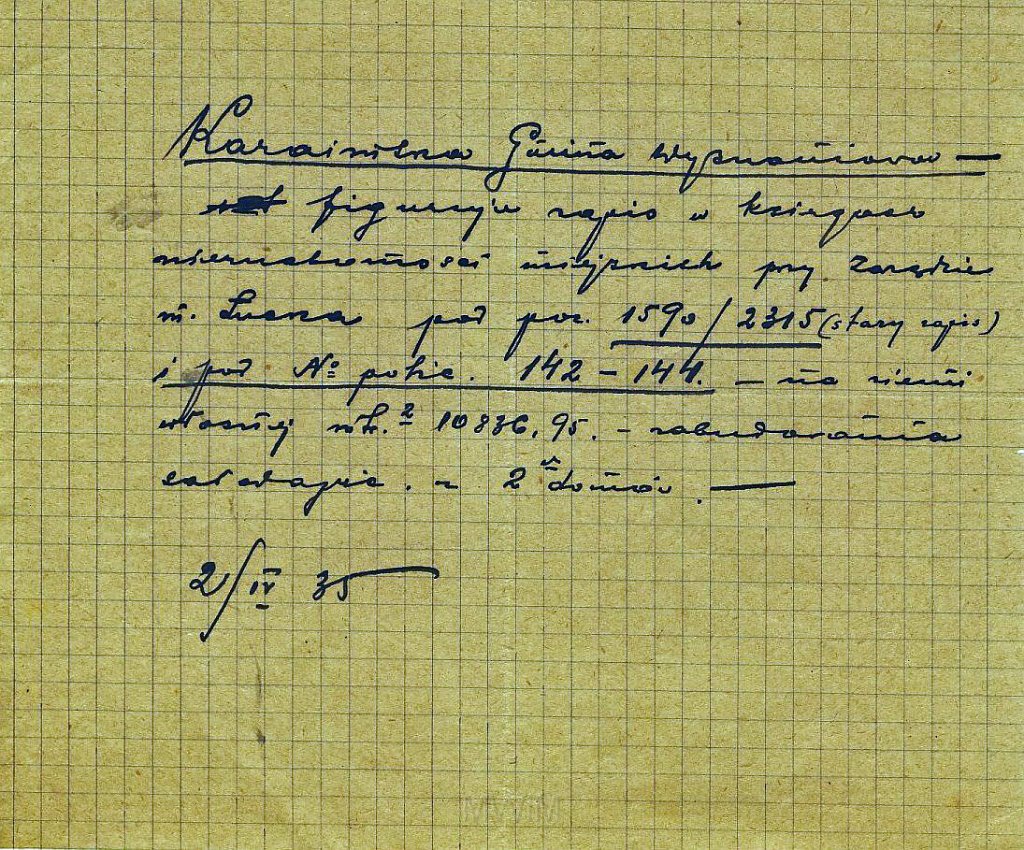 Karaimska Gmina Wyznaniowa —
figuruje zapis w księgach
nieruchomości miejskich przy Zarządzie
m. Łucka pod poz. 1590/2315 (stary zapis)
i pod № polic. 142 – 144. – na ziemi
własnej mtr.² 10836,95. – zabudowania
2 domów. —
2/IV 35